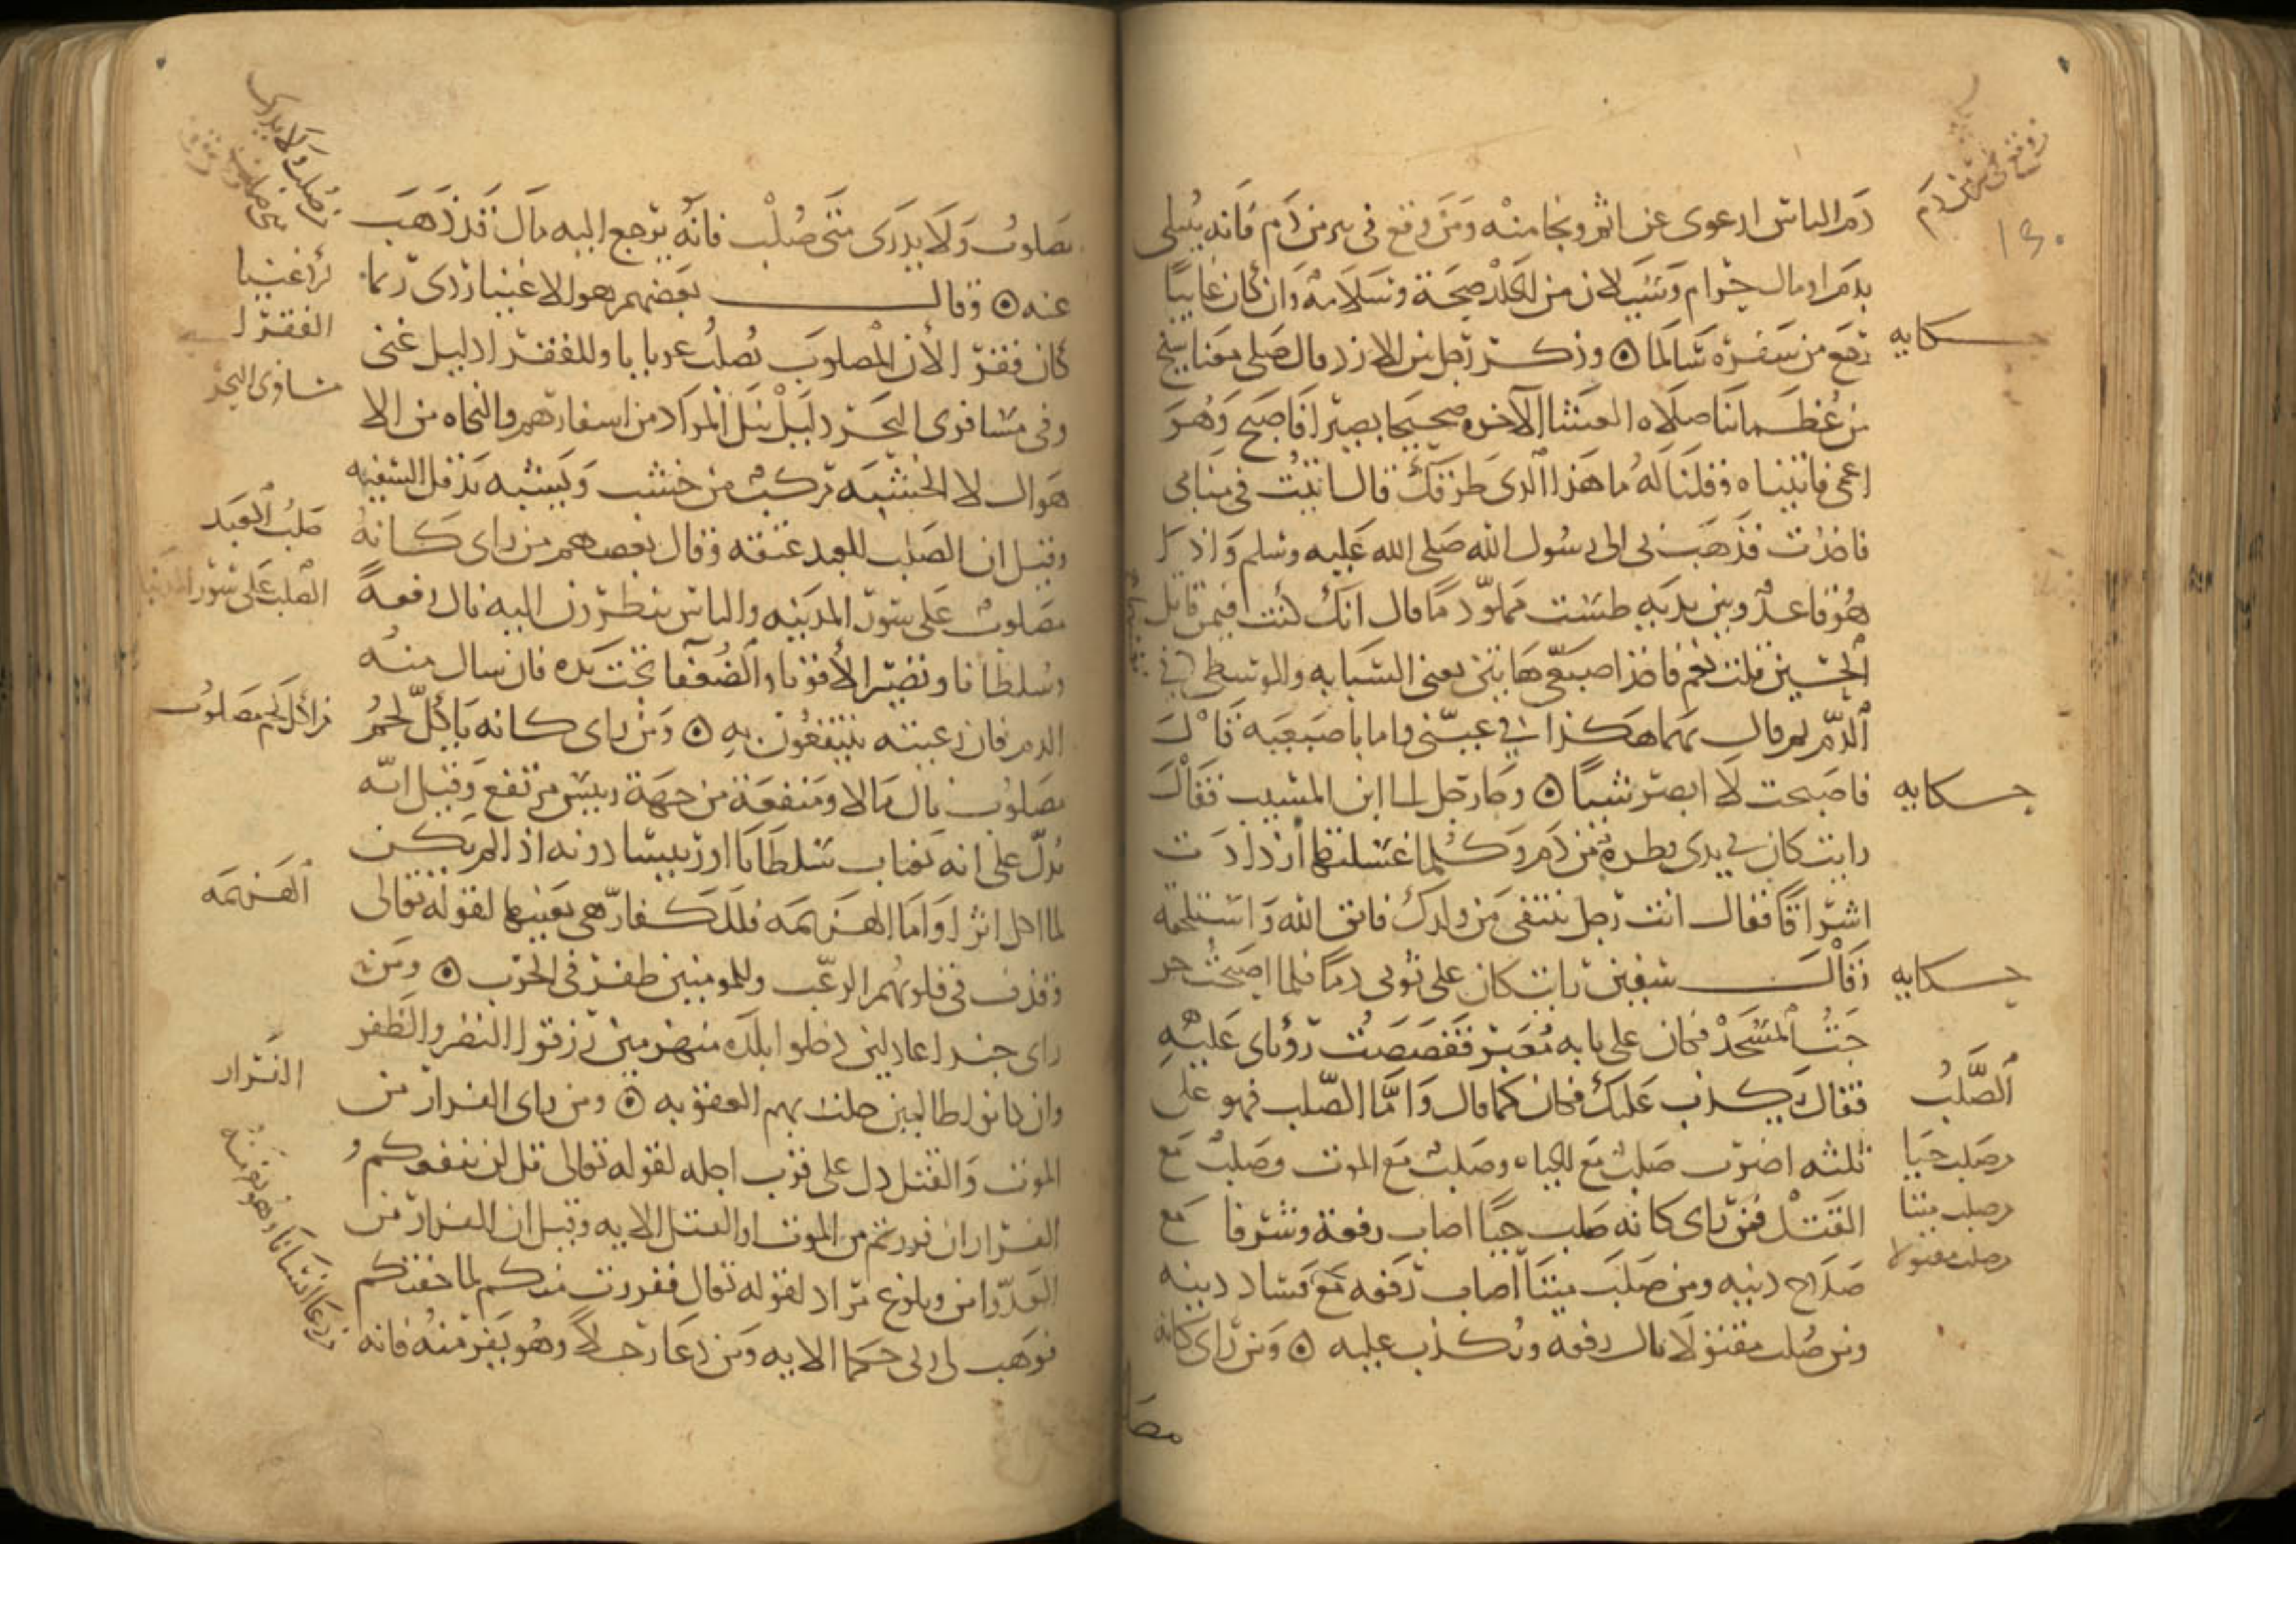 دم الناس ارعوى عن اثم ونجا منه ومن وقع في بير من دم فانه يبتلى
بدم او مال حرام وسيلان من الجلد صحة وسلامة وان كان غايبًا
رجع من سفره سالما ۞ وذكر رجل من الازد قال صلى معنا
من عظماينا صلاه العشا الآخره صحيحا بصيرا فاصبح وهو
اعمى فاتيناه وقلنا له ما هذا الذى طرقك قال اتيت في منامى
فاخذت فذهب بى الى رسول الله صلى الله عليه وسلم واذا
هو قاعد وبين يديه طست مملو دما قال انك كنت فيمن قاتل
الحسين قلت نعم فاخذ اصبعى هاتين يعنى السبابه والوسطى في
الدم ثم قال بهما هكذا في عينى واما باصبعيه قال
فاصبحت لا ابصر شيا ۞ وجا رجل الى ابن المسيب فقال
رايت كان في يدى قطرة من دم وكلما غسلتها ازدادت
اشراقا فقال انت رجل تنتفى من ولدك فاتق الله واستلحقه
وقال رايت كان على ثوبى دما فلما اصبحت
جئت المسجد فكان على بابه معبر فقصصت رؤياى عليه
فقال يكذب عليك فكان كما قال واما الصلب فهو على
ثلثه اضرب صلب مع الحياه وصلب مع الموت وصلب مع
القتل فمن راى كانه صلب حيًا اصاب رفعة وشرفا مع
صلاح دينه ومن صلب ميتا اصاب رفعه مع فساد دينه
ومن صلب مقتولا نال رفعه ويكذب عليه ۞ ومن راى كانه
مصا
١٥٠
حكايه
حكايه
حكايه
الصلب
وصلب حيا
وصلب ميتا
وصلب مقتولا
مصلوب ولا يدرى متى صلب فانه يرجع اليه مال قد ذهب
عنه ۞ وقال بعضهم هو للاغنيا ردى ربما
كان فقرا لان المصلوب يصلب عريانا وللفقرا دليل غنى
وفى مسافرى البحر دليل نيل المراد من اسفارهم والنجاه من الا
هوال لان الخشبه تركب من خشب ويشبه بدقل السفينه
وقيل ان الصلب للعبد عتقه وقال بعضهم من راى كانه
مصلوب على سور المدينه والناس ينظرون اليه نال رفعة
وسلطانا وتصير الاقويا والضعفا تحت يده فان سال منه
الدم فان رعيته ينتفعون به ۞ ومن راى كانه ياكل لحم
مصلوب نال مالا ومنفعة من جهة رييس مرتفع وقيل انه
يدل على انه يغتاب سلطانا او رييسا دونه اذا لم يكن
لما اكل اثرا واما الهزيمه فللكفار هى بعينها لقوله تعالى
وقذف فى قلوبهم الرعب وللمومنين ظفر فى الحرب ۞ ومن
راى جندا عادلين دخلوا بلده منهزمين رزقوا النصر والظفر
وان كانوا ظالمين حلت بهم العقوبه ۞ ومن راى الفرار من
الموت والقتل دل على قرب اجله لقوله تعالى قل لن ينفعكم
الفرار ان فررتم من الموت او القتل الايه وقيل ان الفرار من
العدو امن وبلوغ مراد لقوله تعالى ففررت منكم لما خفتكم
فوهب لى ربى حكما الايه ومن دعا رجلا وهو يفر منه فانه
الفقرا
صلب العبد
الصلب على سور المدينه
من اكل لحم مصلوب
الهزيمه
الفرار
من دعا انسانا وهو يفر منه